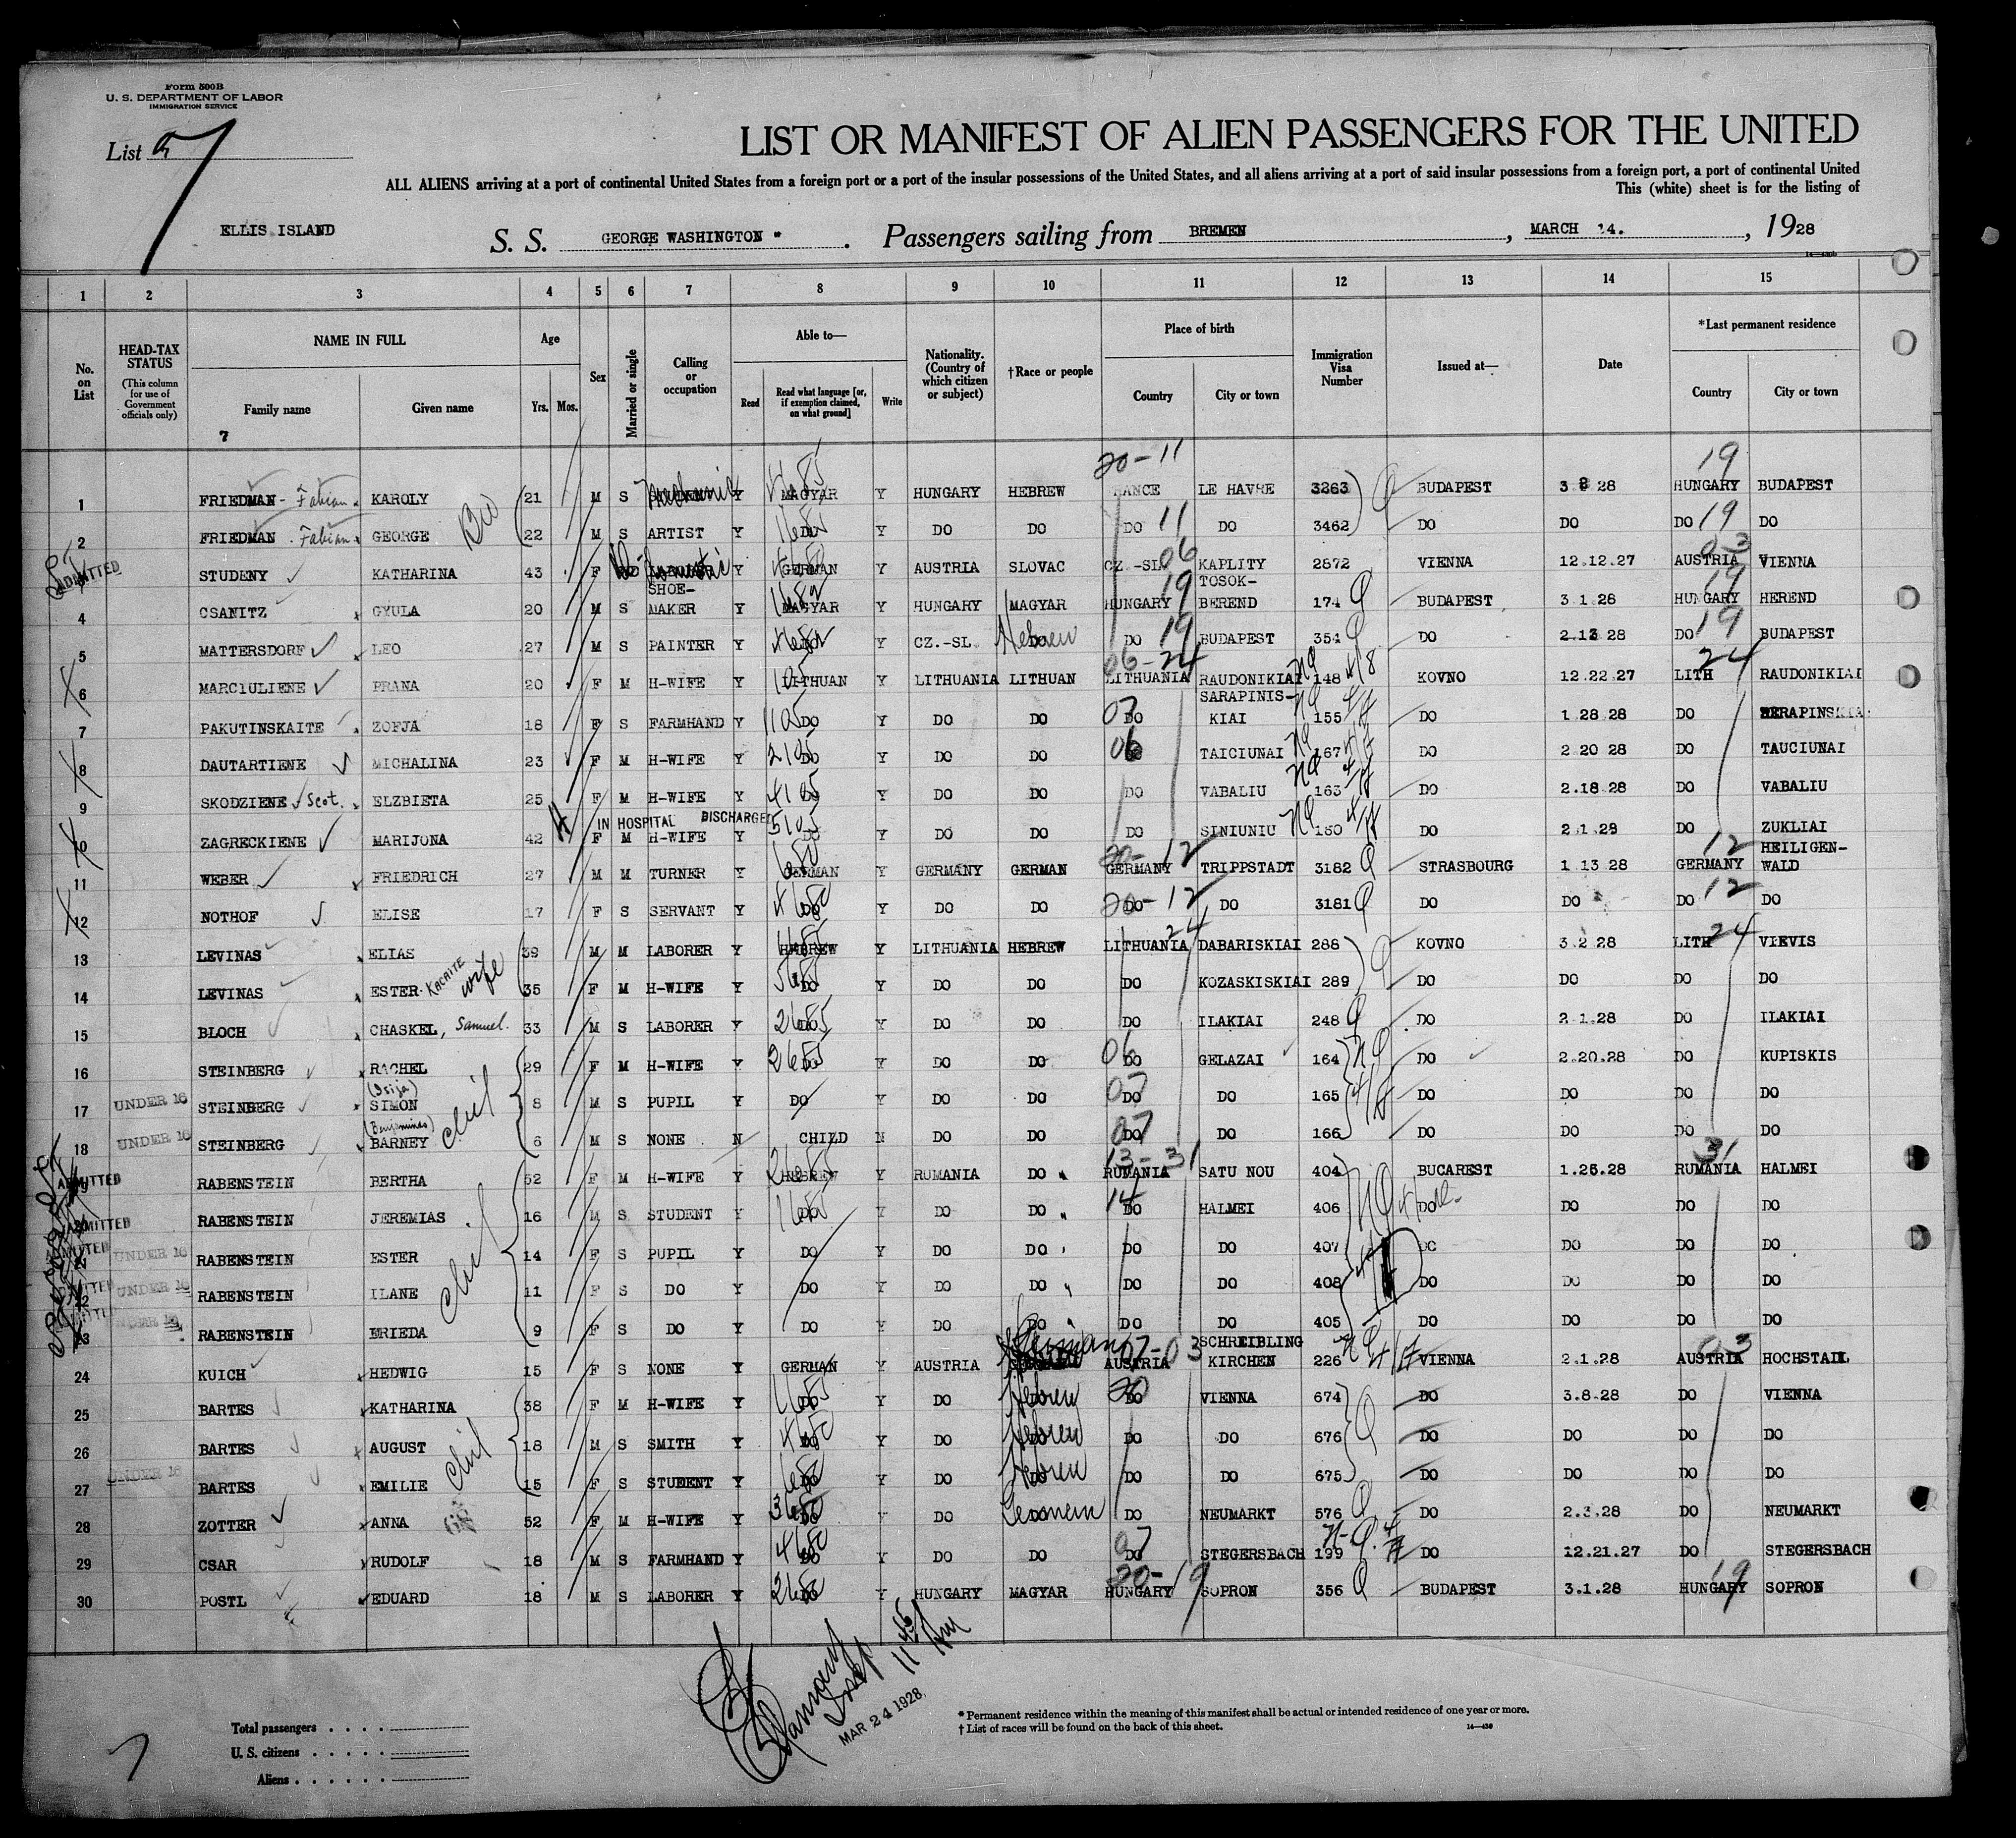 Form 500B
U. S. DEPARTMENT OF LABOR
IMMIGRATION SERVICE
List 7
LIST OR MANIFEST OF ALIEN PASSENGERS FOR THE UNITED
ALL ALIENS arriving at a port of continental United States from a foreign port or a port of the insular possessions of the United States, and all aliens arriving at a port of said insular possessions from a foreign port, a port of continental United
This (white) sheet is for the listing of
ELLIS ISLAND S. S. GEORGE WASHINGTON . Passengers sailing from BREMEN , MARCH 14. , 1928
14—430b
1 2 3 4 5 6 7 8 9 10 11 12 13 14 15
No. on List
HEAD-TAX STATUS
(This column for use of Government officials only)
NAME IN FULL
Family name Given name
7
Age
Yrs. Mos.
Sex
Married or single
Calling or occupation
Able to—
Read
Read what language [or, if exemption claimed, on what ground]
Write
Nationality. (Country of which citizen or subject)
†Race or people
Place of birth
Country City or town
Immigration Visa Number
Issued at—
Date
*Last permanent residence
Country City or town
20-11 19
1 FRIEDMAN - Fabian KAROLY 21 M S Mechanic Y MAGYAR Y HUNGARY HEBREW LE HAVRE 3263 BUDAPEST 3 8 28 HUNGARY BUDAPEST
2 FRIEDMAN . Fabian GEORGE 22 M S ARTIST Y DO Y DO DO DO 11 DO 3462 DO DO DO 19 DO
ADMITTED 3 STUDENY KATHARINA 43 F Y GERMAN Y AUSTRIA SLOVAC CZ.-SL. 06 KAPLITY 2872 VIENNA 12.12.27 AUSTRIA 03 VIENNA
4 CSANITZ GYULA 20 M S SHOE-MAKER Y MAGYAR Y HUNGARY MAGYAR HUNGARY 19 TOSOK-BEREND 174 BUDAPEST 3.1.28 HUNGARY 19 HEREND
5 MATTERSDORF LEO 27 M S PAINTER Y DO Y CZ.-SL. Hebrew DO 19 BUDAPEST 354 DO 2.13 28 DO 19 BUDAPEST
6 MARCIULIENE PRANA 20 F M H-WIFE Y LITHUAN Y LITHUANIA LITHUAN 06-24 LITHUANIA RAUDONIKIAI 148 KOVNO 12.22.27 LITH 24 RAUDONIKIAI
7 PAKUTINSKAITE ZOFJA 18 F S FARMHAND Y DO Y DO DO 07 DO SARAPINIS-KIAI 155 DO 1.28 28 DO
8 DAUTARTIENE MICHALINA 23 F M H-WIFE Y DO Y DO DO 06 TAICIUNAI 167 DO 2 20 28 DO TAUCIUNAI
9 SKODZIENE Scot. ELZBIETA 25 F M H-WIFE Y DO Y DO DO DO VABALIU 163 DO 2.18 28 DO VABALIU
IN HOSPITAL DISCHARGED
10 ZAGRECKIENE MARIJONA 42 F M H-WIFE Y DO Y DO DO DO SINIUNIU 160 DO 2.1.28 DO ZUKLIAI
11 WEBER FRIEDRICH 27 M M TURNER Y GERMAN Y GERMANY GERMAN 20-12 GERMANY TRIPPSTADT 3182 STRASBOURG 1 13 28 GERMANY 12 HEILIGEN-WALD
12 NOTHOF ELISE 17 F S SERVANT Y DO Y DO DO 20-12 DO DO 3181 DO DO DO 12 DO
13 LEVINAS ELIAS 39 M M LABORER Y HEBREW Y LITHUANIA HEBREW LITHUANIA 24 DABARISKIAI 288 KOVNO 3.2.28 LITH 24 VIEVIS
14 LEVINAS ESTER wife 35 F M H-WIFE Y DO Y DO DO DO KOZASKISKIAI 289 DO DO DO DO
15 BLOCH CHASKEL, Samuel. 33 M S LABORER Y DO Y DO DO DO ILAKIAI 248 DO 2.1.28 DO ILAKIAI
16 STEINBERG RACHEL 29 F M H-WIFE Y DO Y DO DO 06 DO GELAZAI 164 DO 2.20.28 DO KUPISKIS
17 UNDER 16 STEINBERG SIMON 8 M S PUPIL Y DO Y DO DO 07 DO DO 165 DO DO DO DO
18 UNDER 16 STEINBERG BARNEY 6 M S NONE N CHILD N DO DO 07 DO DO 166 DO DO DO DO
ADMITTED 19 RABENSTEIN BERTHA 52 F M H-WIFE Y HEBREW Y RUMANIA DO 13-31 RUMANIA SATU NOU 404 BUCAREST 1.25.28 RUMANIA 31 HALMEI
ADMITTED 20 RABENSTEIN JEREMIAS 16 M S STUDENT Y DO Y DO DO 14 DO HALMEI 406 DO DO DO DO
ADMITTED 21 UNDER 16 RABENSTEIN ESTER 14 F S PUPIL Y DO Y DO DO DO DO 407 DO DO DO DO
ADMITTED 22 UNDER 16 RABENSTEIN ILANE 11 F S DO Y DO Y DO DO DO DO 408 DO DO DO DO
ADMITTED 23 UNDER 16 RABENSTEIN FRIEDA 9 F S DO Y DO Y DO DO DO DO 405 DO DO DO DO
24 KUICH HEDWIG 15 F S NONE Y GERMAN Y AUSTRIA German 07-03 AUSTRIA SCHREIBLING KIRCHEN 226 VIENNA 2.1.28 AUSTRIA 03 HOCHSTAIL
25 BARTES KATHARINA 38 F M H-WIFE Y DO Y DO Hebrew 20 DO VIENNA 674 DO 3.8.28 DO VIENNA
26 BARTES AUGUST 18 M S SMITH Y DO Y DO Hebrew DO DO 676 DO DO DO DO
27 UNDER 16 BARTES EMILIE 15 F S STUDENT Y DO Y DO Hebrew DO DO 675 DO DO DO DO
28 ZOTTER ANNA 52 F M H-WIFE Y DO Y DO German DO NEUMARKT 576 DO 2.3.28 DO NEUMARKT
29 CSAR RUDOLF 18 M S FARMHAND Y DO Y DO DO 07 DO STEGERSBACH 199 DO 12.21.27 DO STEGERSBACH
30 POSTL EDUARD 18 M S LABORER Y DO Y HUNGARY MAGYAR 20-19 HUNGARY SOPRON 356 BUDAPEST 3.1.28 HUNGARY 19 SOPRON
MAR 24 1928
Total passengers . . . .
U. S. citizens . . . . .
Aliens . . . . . .
7
* Permanent residence within the meaning of this manifest shall be actual or intended residence of one year or more.
† List of races will be found on the back of this sheet.
14—430